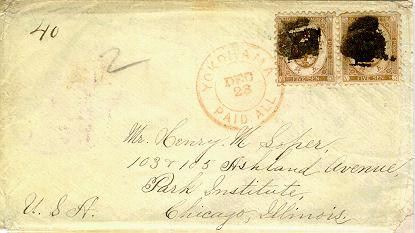 40
2
YOKOHAMA
DEC
23
PAID ALL
FIVE SEN
FIVE SEN
Mr. Henry M Soper,
103 & 105 Ashland Avenue,
Park Institute,
Chicago, Illinois,
U. S. A.